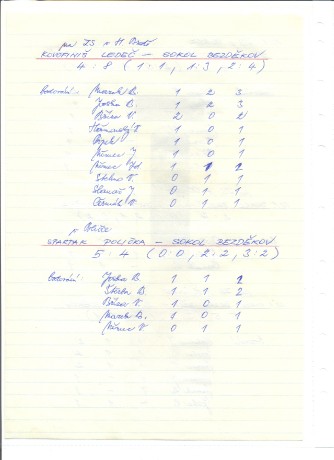 na ZS v H. Brodě
KOVOFINIŠ LEDEČ - SOKOL BEZDĚKOV
4 : 8 ( 1 : 1 , 1 : 3 , 2 : 4 )
Bodování: Marek B. 1 2 3
Jirka B. 1 2 3
V. 2 0 2
1 0 1
1 0 1
Němec J. 1 0 1
Němec 1 1 2
V. 0 1 1
J. 0 1 1
V. 0 1 1
v Poličce
SPARTAK POLIČKA - SOKOL BEZDĚKOV
5 : 4 ( 0 : 0 , 2 : 2 , 3 : 2 )
Bodování: Jirka B. 1 1 2
B. 1 1 2
V. 1 0 1
Marek B. 1 0 1
Němec V. 0 1 1